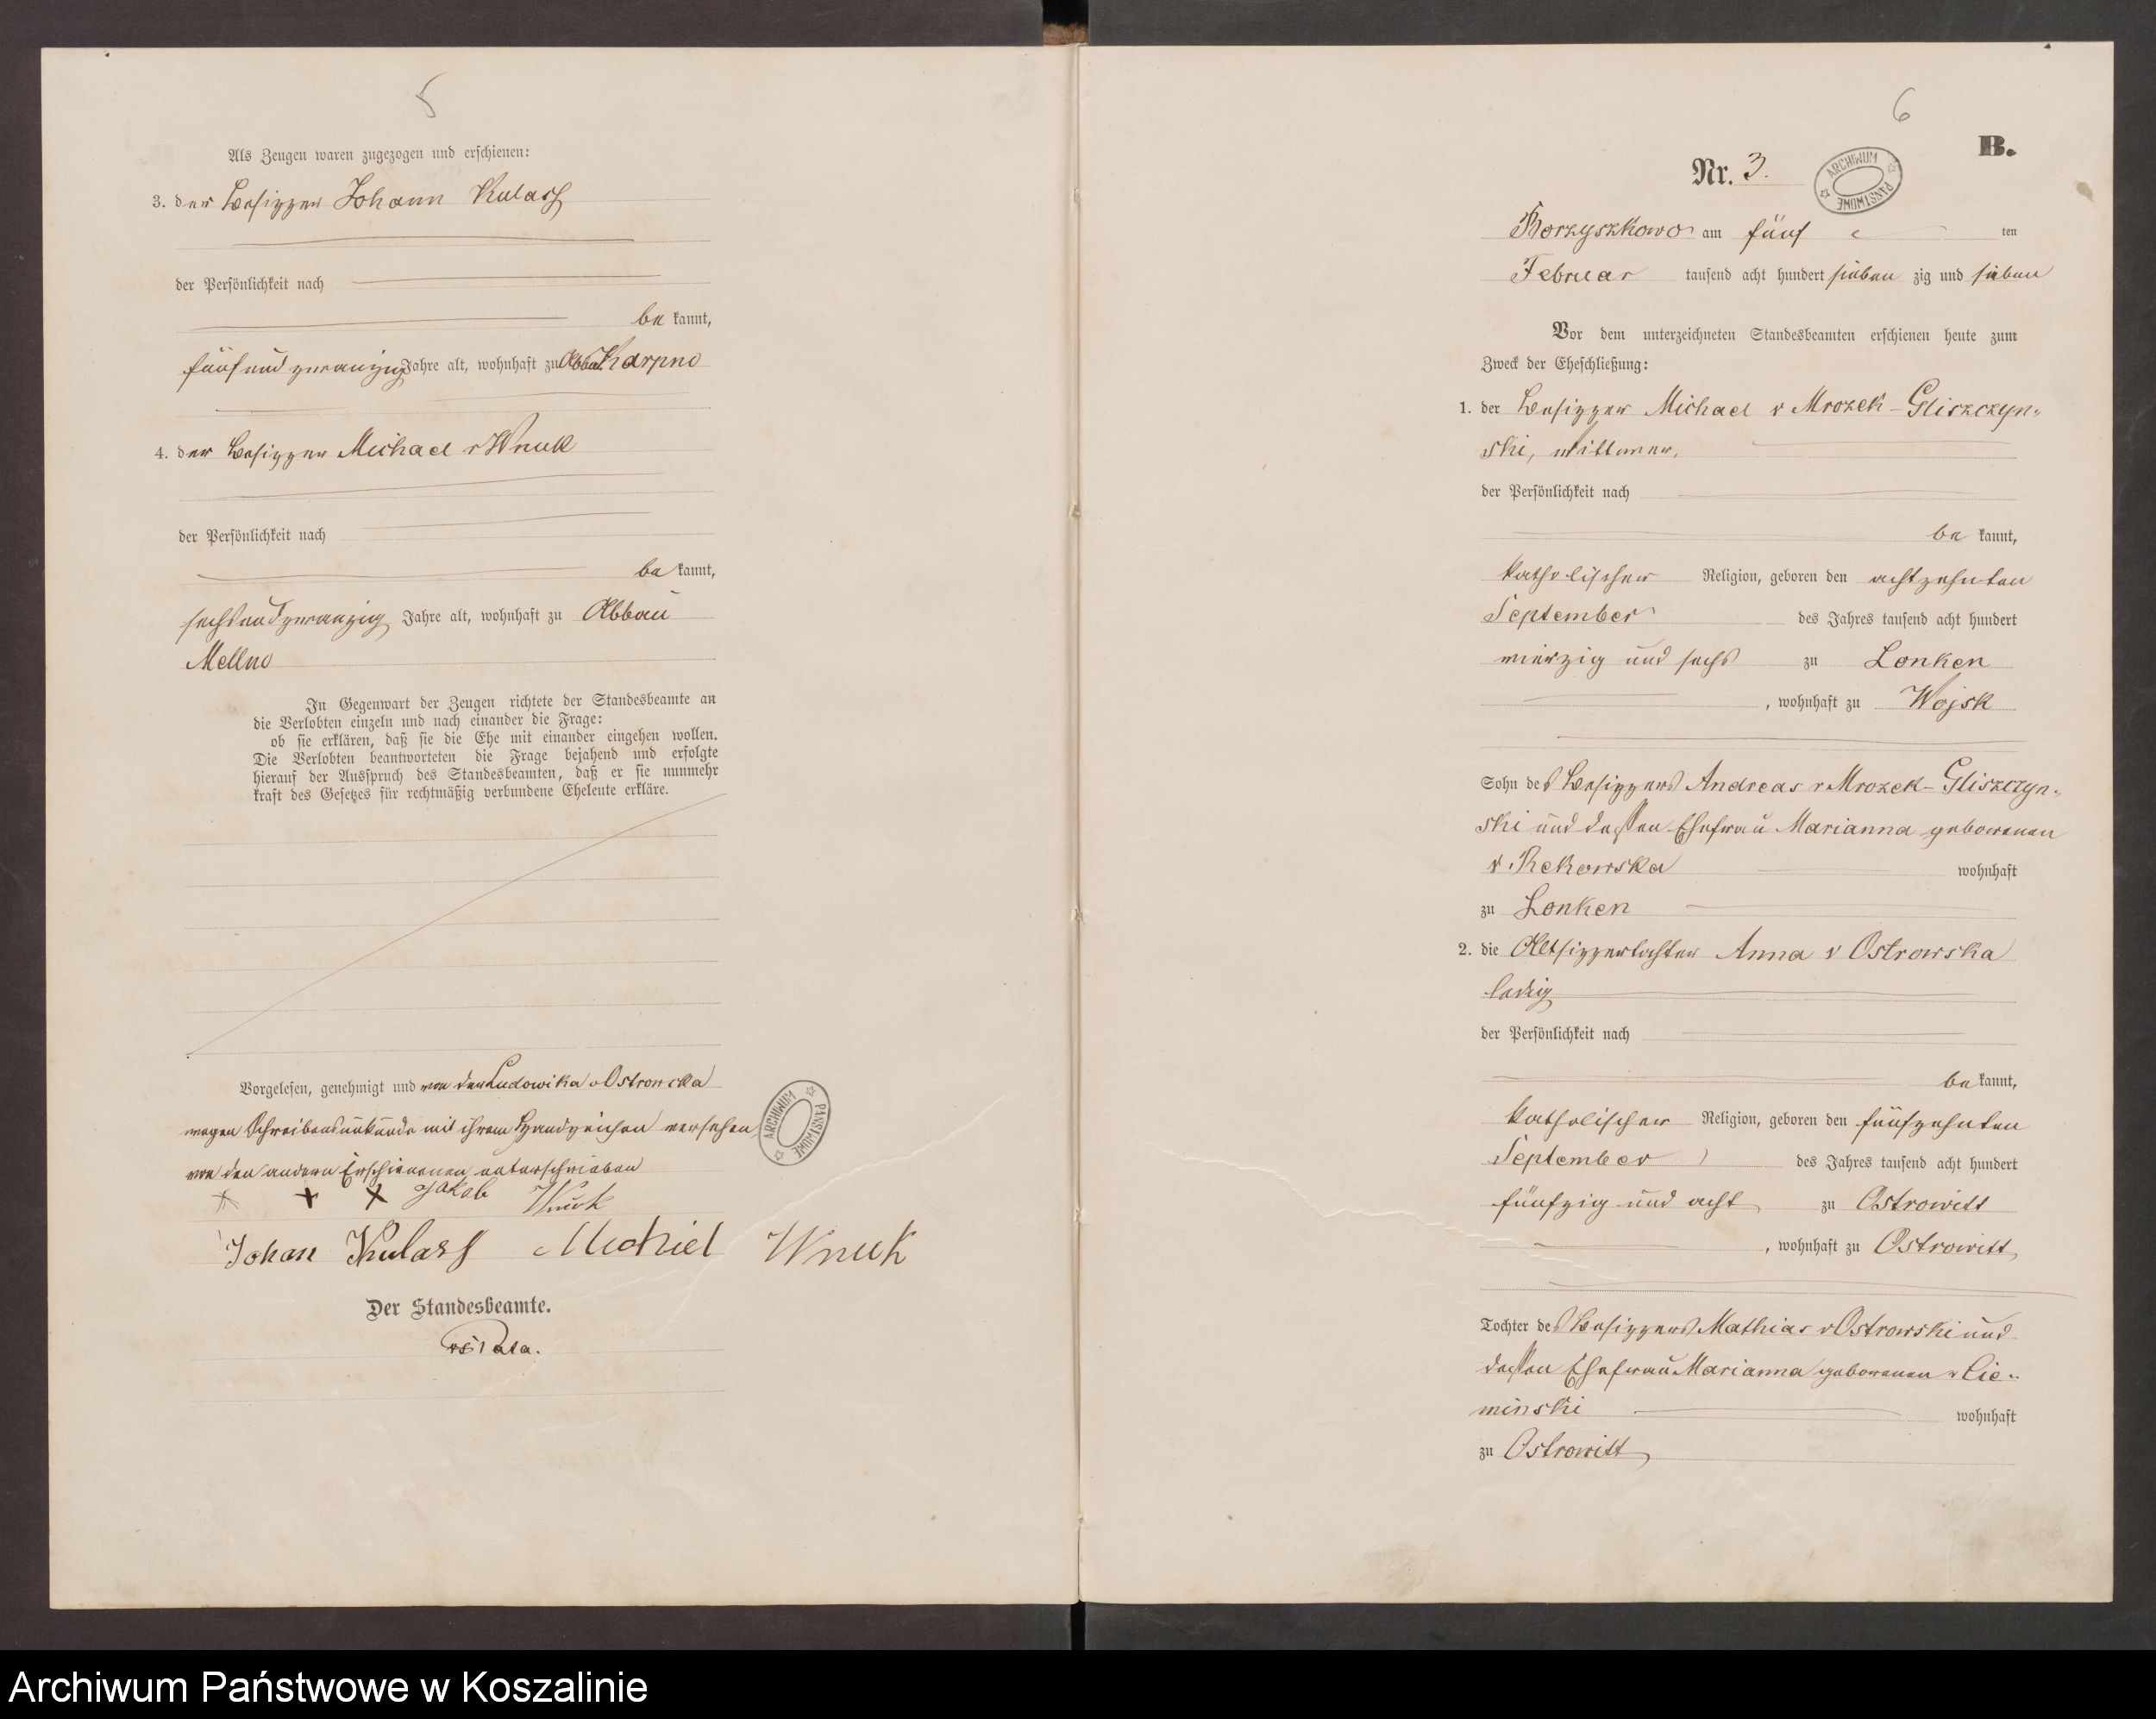 5
Als Zeugen waren zugezogen und erschienen:
3. der Besitzer Johann Kulass
der Persönlichkeit nach
be kannt,
fünf und zwanzig Jahre alt, wohnhaft zu Abbau Karpno
4. der Besitzer Michael v Wnuk
der Persönlichkeit nach
be kannt,
sechs und zwanzig Jahre alt, wohnhaft zu Abbau
Mellno
In Gegenwart der Zeugen richtete der Standesbeamte an
die Verlobten einzeln und nach einander die Frage:
ob sie erklären, daß sie die Ehe mit einander eingehen wollen.
Die Verlobten beantworteten die Frage bejahend und erfolgte
hierauf der Ausspruch des Standesbeamten, daß er sie nunmehr
kraft des Gesetzes für rechtmäßig verbundene Eheleute erkläre.
Vorgelesen, genehmigt und von der Ludowika v Ostrowska
wegen Schreibensunkunde mit ihrem Handzeichen versehen
von den andern Erschienenen unterschrieben
+ + + Jakob Wnuk
Johan Kulass Michiel Wnuk
Der Standesbeamte.
ARCHIWUM PAŃSTWOWE
6
B.
Nr. 3.
ARCHIWUM PAŃSTWOWE
Borzyszkowo am fünf ten
Februar tausend acht hundert sieben zig und sieben
Vor dem unterzeichneten Standesbeamten erschienen heute zum
Zweck der Eheschließung:
1. der Besitzer Michael v Mrozek-Gliszczyn-
ski, Wittwer,
der Persönlichkeit nach
be kannt,
katholischer Religion, geboren den achtzehnten
September des Jahres tausend acht hundert
vierzig und sechs zu Lonken
, wohnhaft zu Wojsk
Sohn des Besitzers Andreas v Mrozek-Gliszczyn-
ski und dessen Ehefrau Marianna geborenen
v Rekowska wohnhaft
zu Lonken
2. die Altsitzertochter Anna v Ostrowska
ledig
der Persönlichkeit nach
be kannt,
katholischer Religion, geboren den fünfzehnten
September des Jahres tausend acht hundert
fünfzig und acht zu Ostrowitt
, wohnhaft zu Ostrowitt
Tochter des Besitzers Mathias v Ostrowski und
dessen Ehefrau Marianna geborenen v Cie-
minski wohnhaft
zu Ostrowitt
Archiwum Państwowe w Koszalinie